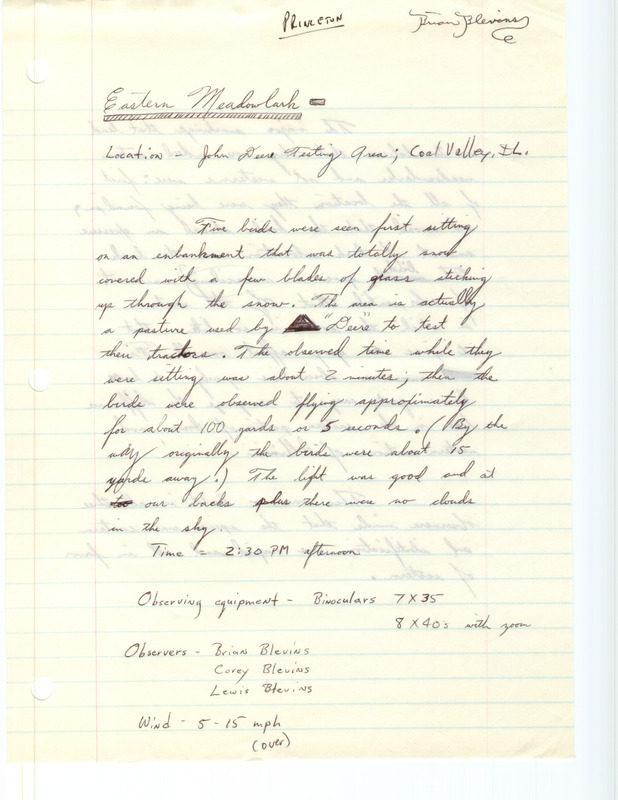 PRINCETON
Brian Blevins
Eastern Meadowlark
Location - John Deere Testing Area; Coal Valley, IL.
Five birds were seen first setting
on an enbankment that was totally snow
covered with a few blades of grass sticking
up through the snow. The area is actually
a pasture used by "Deere" to test
their tractors. The observed time while they
were setting was about 2 minutes; then the
birds were observed flying approximately
for about 100 yards or 5 seconds. (By the
way originally the birds were about 15
yards away.) The light was good and at
too our backs plus there were no clouds
in the sky.
Time = 2:30 PM afternoon
Observing equipment - Binoculars 7X35
8X40's with zoom
Observers - Brian Blevins
Corey Blevins
Lewis Blevins
Wind - 5-15 mph
(over)